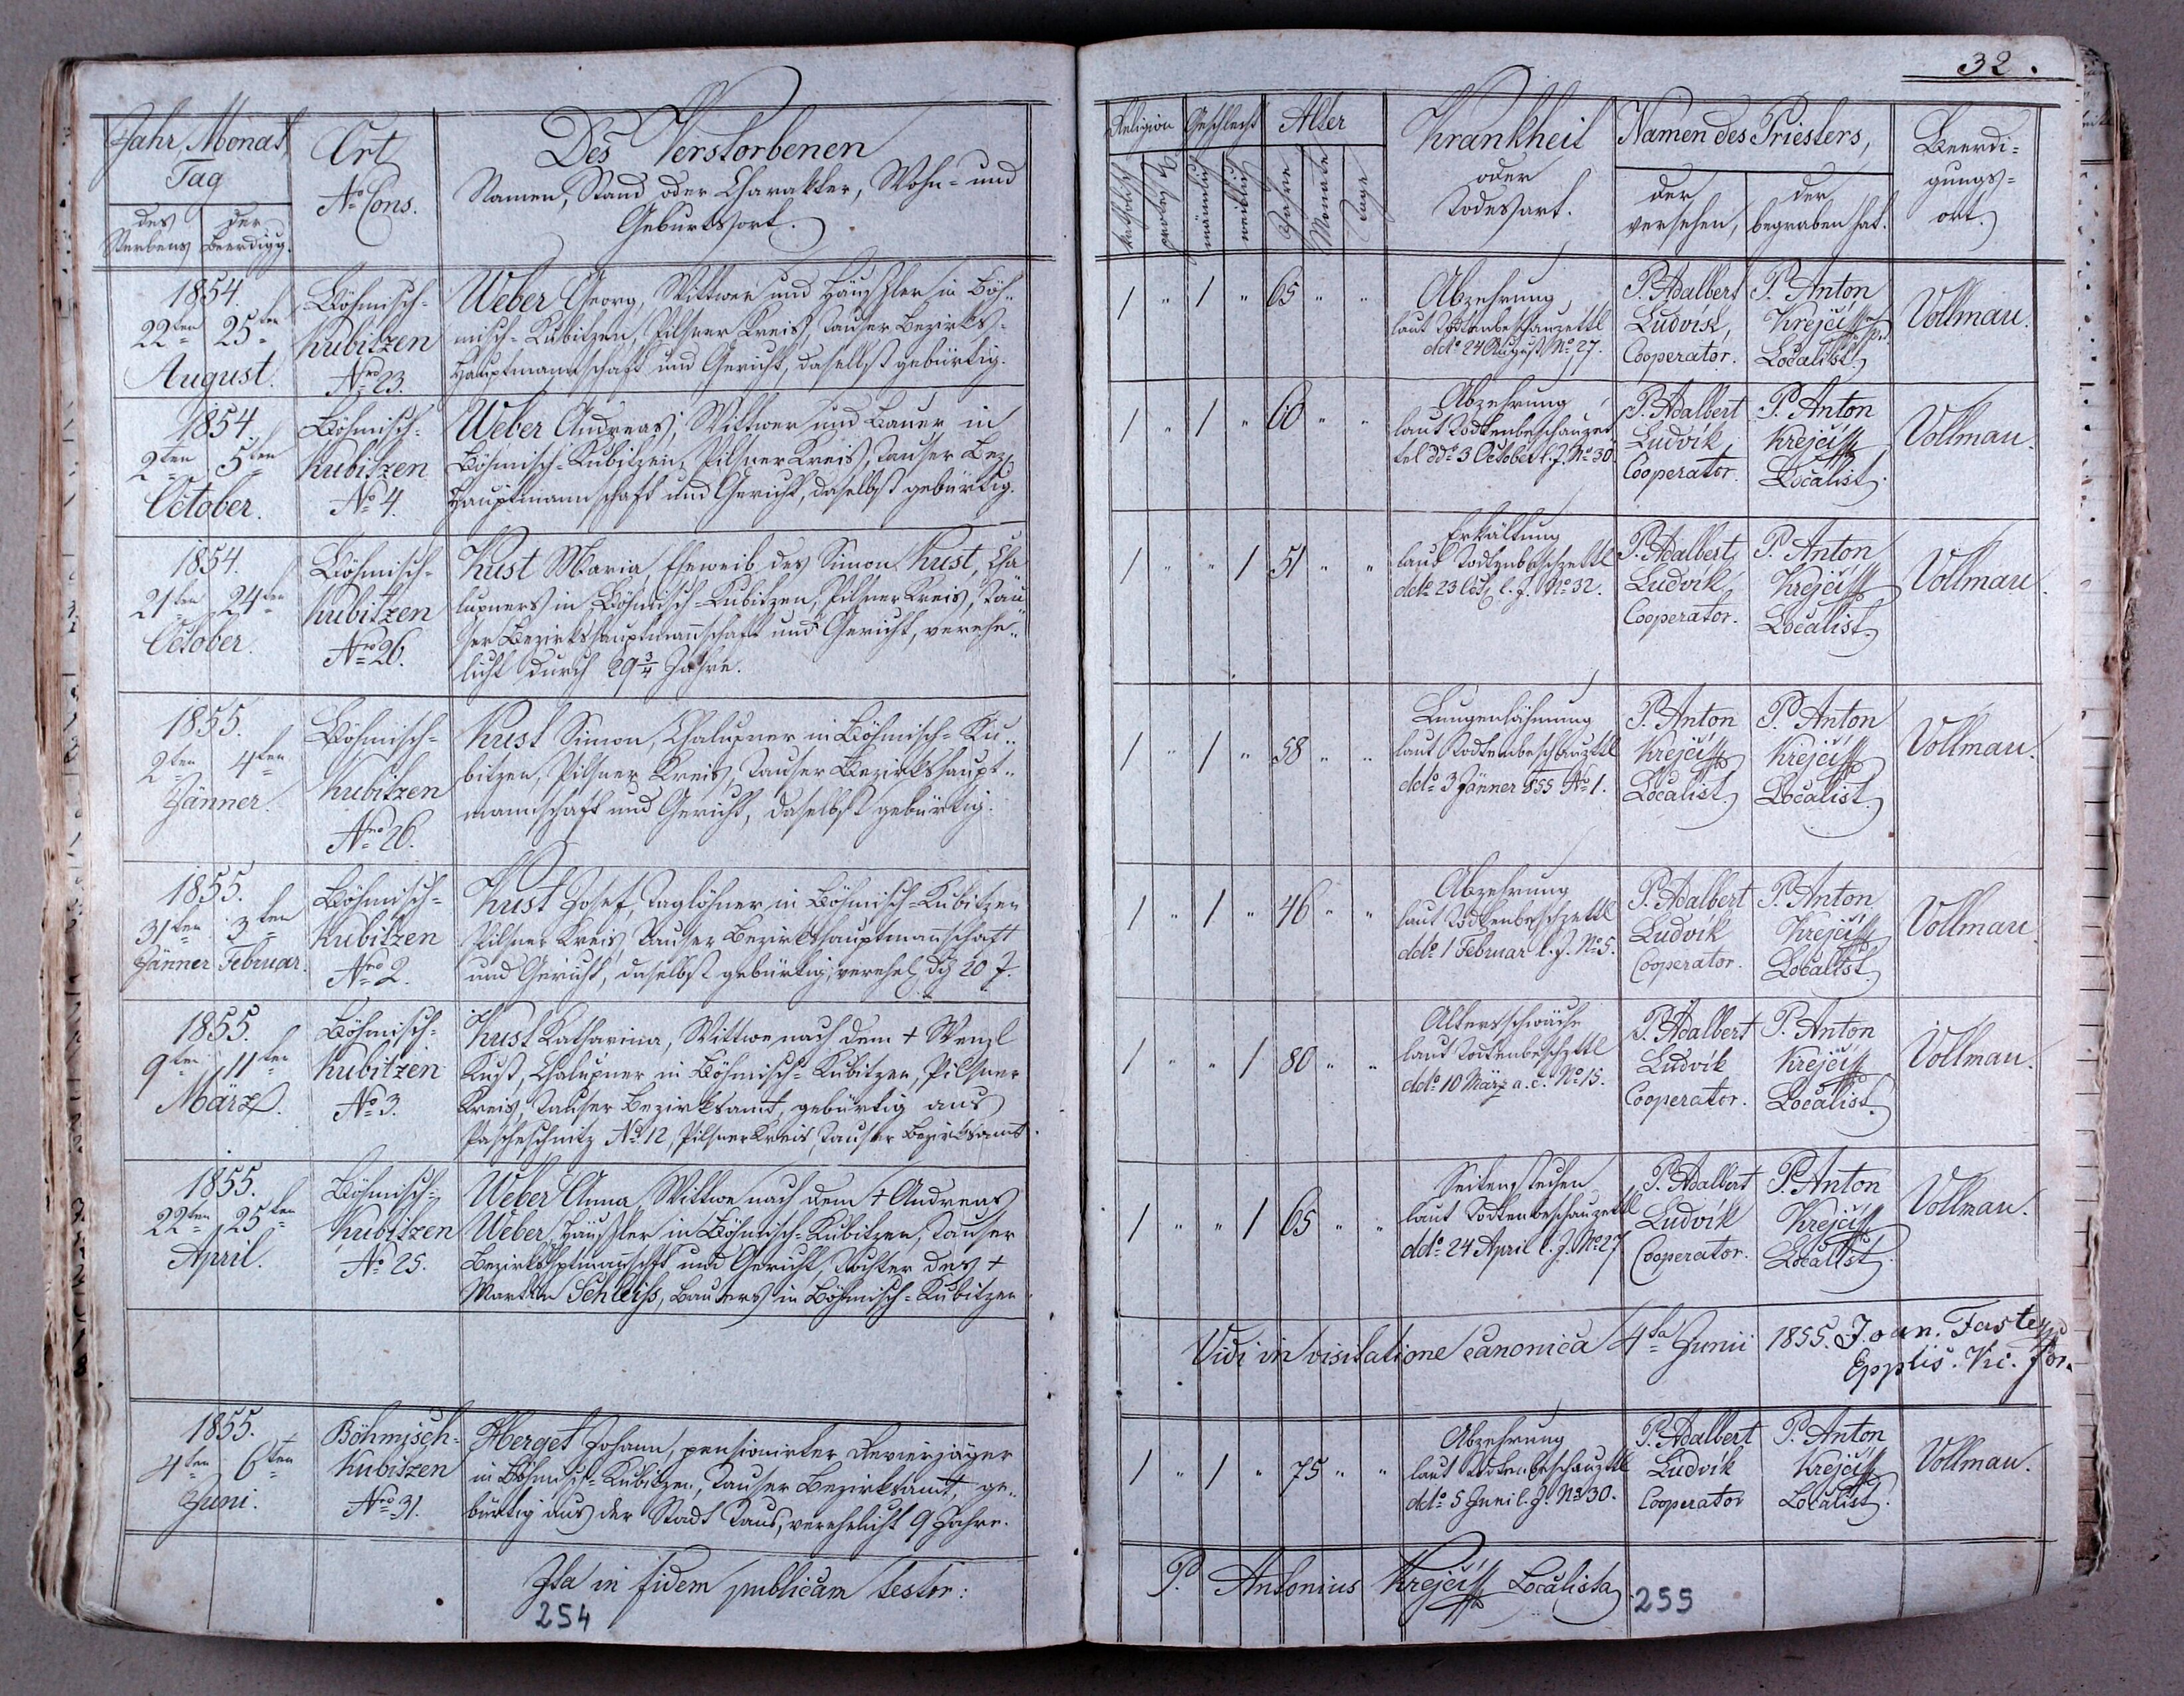 32.
Jahr, Monat,
Tag
des
Sterbens
der
Beerdigg.
Ort
No Cons.
Des Verstorbenen
Namen, Stand oder Charakter, Wohn- und
Geburtsort.
Religion
katholisch
Geschlecht
männlich
weiblich
Alter
Jahre
Monate
Tage
Krankheit
oder
Todesart.
Namen des Priesters,
der
versehen,
der
begraben hat.
Beerdi-
gungs-
ort.
1854.
22ten 25ten
August.
Böhmisch-
Kubitzen
Nro 23.
Weber Georg, Wittwer und Häusler in Böh-
misch-Kubitzen, Pilsner Kreis, Tauser Bezirks-
Hauptmannschaft und Gericht, daselbst gebürtig.
1 " 1 " 65 " "
Abzehrung
laut Todtenbeschauzettl
ddo 24 August No 27.
P. Adalbert
Ludvík,
Cooperator.
P. Anton
Krejčí
Localist.
Vollmau.
1854.
2ten 5ten
October.
Böhmisch-
Kubitzen
No 4.
Weber Andreas, Wittwer und Bauer in
Böhmisch-Kubitzen, Pilsner Kreis, Tauser Bez.
Hauptmannschaft und Gericht, daselbst gebürtig.
1 " 1 " 60 " "
Abzehrung
laut Todtenbeschauzet
tel ddo 3 October l. J. No 30.
P. Adalbert
Ludvík
Cooperator.
P. Anton
Krejčí
Localist.
Vollmau.
1854.
21ten 24ten
October.
Böhmisch-
Kubitzen
Nro 26.
Kust Maria, Eheweib des Simon Kust, Cha
lupners in Böhmisch-Kubitzen, Pilsner Kreis, Tau
ser Bezirkshauptmannschaft und Gericht, verehe-
licht durch 29 3/4 Jahre.
1 " " 1 51 " "
Erkältung
laut Todtenbeschzettl
ddo 23 Oct. l. J. No 32.
P. Adalbert
Ludvík
Cooperator.
P. Anton
Krejčí
Localist.
Vollmau.
1855.
2ten 4ten
Jänner.
Böhmisch-
Kubitzen
Nro 26.
Kust Simon, Chalupner in Böhmisch-Ku-
bitzen, Pilsner Kreis, Tauser Bezirkshaupt-
mannschaft und Gericht, daselbst gebürtig.
1 " 1 " 58 " "
Lungenlähmung
laut Todtenbeschauzttl
ddo 3 Jänner 855 No 1.
P. Anton
Krejčí
Localist.
P. Anton
Krejčí
Localist.
Vollmau.
1855.
31ten 3ten
Jänner Februar.
Böhmisch-
Kubitzen
Nro 2.
Kust Josef, Taglöhner in Böhmisch-Kubitzen
Pilsner Kreis, Tauser Bezirkshauptmannschaft
und Gericht, daselbst gebürtig, verehel. dch 20 J.
1 " 1 " 46 " "
Abzehrung
laut Todtenbeschzettl
ddo 1 Februar l. J. No 5.
P. Adalbert
Ludvík
Cooperator.
P. Anton
Krejčí
Localist.
Vollmau.
1855.
9ten 11ten
März.
Böhmisch-
Kubitzen
No 3.
Kust Katharina, Wittwe nach dem + Wenzl
Kust, Chalupner in Böhmisch-Kubitzen, Pilsner
Kreis, Tauser Bezirksamt, gebürtig aus
Pascheschnitz No 12, Pilsner Kreis, Tauser Bezirksamt.
1 " " 1 80 " "
Altersschwäche
laut Todtenbeschzttl
ddo 10 März a. c. No 15.
P. Adalbert
Ludvík
Cooperator.
P. Anton
Krejčí
Localist.
Vollmau.
1855.
22ten 25ten
April.
Böhmisch-
Kubitzen
No 25.
Weber Anna, Wittwe nach dem + Andreas
Weber, Häusler in Böhmisch-Kubitzen, Tauser
Bezirkshptmannschft und Gericht, Tochter des +
Martin Schleiss, Bauers in Böhmisch-Kubitzen
1 " " 1 65 " "
Seitenstechen
laut Todtenbeschauzettl
ddo 24 April l. J. No 27
P. Adalbert
Ludvík
Cooperator.
P. Anton
Krejčí
Localist.
Vollmau.
Vidi in visitatione canonica 4ta Junii 1855. Joan. Faster
Epplis. Vic. for.
1855.
4ten 6ten
Juni.
Böhmisch-
Kubitzen
Nro 31.
Herget Johann, pensionirter Revierjäger
in Böhmisch-Kubitzen, Tauser Bezirksamt, ge-
bürtig aus der Stadt Taus, verehelicht 9 Jahre.
1 " 1 " 75 " "
Abzehrung
laut Todtenbeschauzttl
ddo 5 Juni l. J. No 30.
P. Adalbert
Ludvík
Cooperator
P. Anton
Krejčí
Localist.
Vollmau.
Ita in fidem publicam testor:
P. Antonius Krejčí Localista
254
255